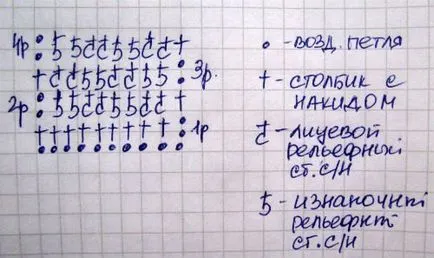 4р
3р.
2р
1р
• - ВОЗД. ПЕТЛЯ
† - СТОЛБИК С
НАКИДОМ
- ЛИЦЕВОЙ
рельефный
ст. с/н
- изнаночнт
рельефнт
ст. с/н